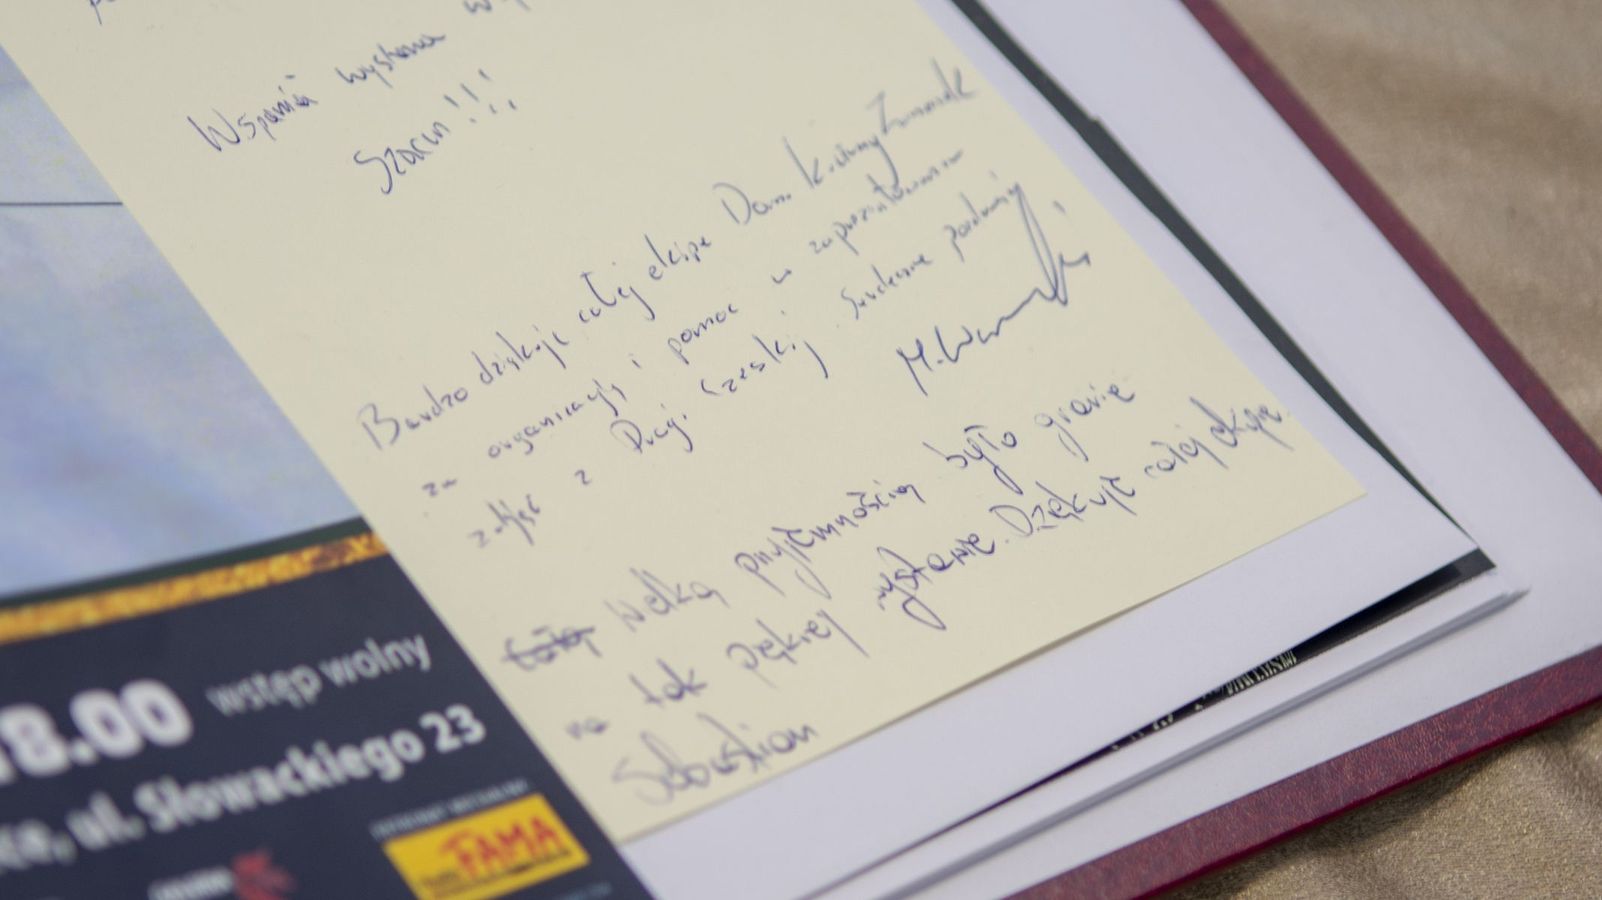 Wspania wystawa
Szacun!!!
Bardzo dziękuję całej ekipie Domu Kultury Zameczek
za organizację i pomoc w zaprezentowaniu
zdjęć z Pragi Czeskiej. Serdecznie pozdrawiam
M. W
Welką przyjemnością było granie
na tak pięknej wystawie. Dziękuję całej ekipie.
Sebastian
18.00 wstęp wolny
ul. Słowackiego 23
FAMA